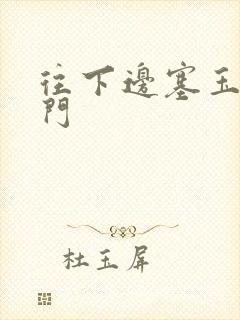 往下邊塞玉
門
杜玉屏